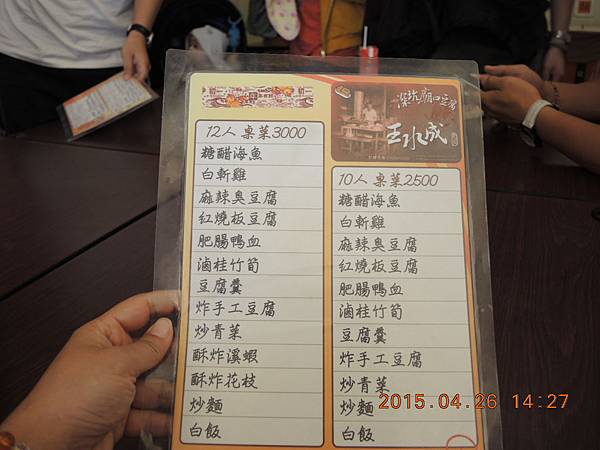 12人 桌菜3000
糖醋海魚
白斬雞
麻辣臭豆腐
紅燒板豆腐
肥腸鴨血
滷桂竹筍
豆腐羹
炸手工豆腐
炒青菜
酥炸溪蝦
酥炸花枝
炒麵
白飯
深坑廟口豆腐
王水成
10人 桌菜2500
糖醋海魚
白斬雞
麻辣臭豆腐
紅燒板豆腐
肥腸鴨血
滷桂竹筍
豆腐羹
炸手工豆腐
炒青菜
炒麵
白飯
2015.04.26 14:27